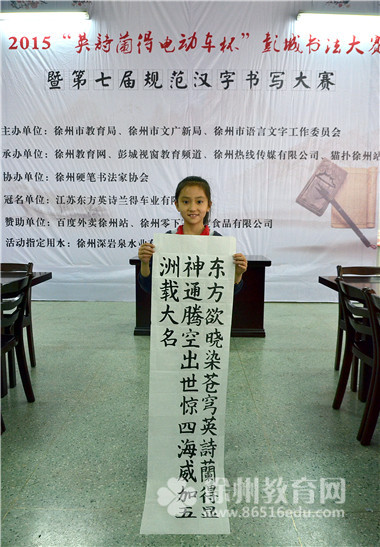 2015“英詩蘭得电动车杯”彭城书法大赛
暨第七届规范汉字书写大赛
主办单位：徐州市教育局、徐州市文广新局、徐州市语言文字工作委员会
承办单位：徐州教育网、彭城视窗教育频道、徐州热线传媒有限公司、猫扑徐州站
协办单位：徐州硬笔书法家协会
冠名单位：江苏东方英诗兰得车业有限
赞助单位：百度外卖徐州站、徐州零下 食品有限公司
活动指定用水：徐州深岩泉水业
东方欲晓染苍穹英詩蘭得显
神通腾空出世惊四海威加五
洲载大名
徐州教育网
www.86516edu.com